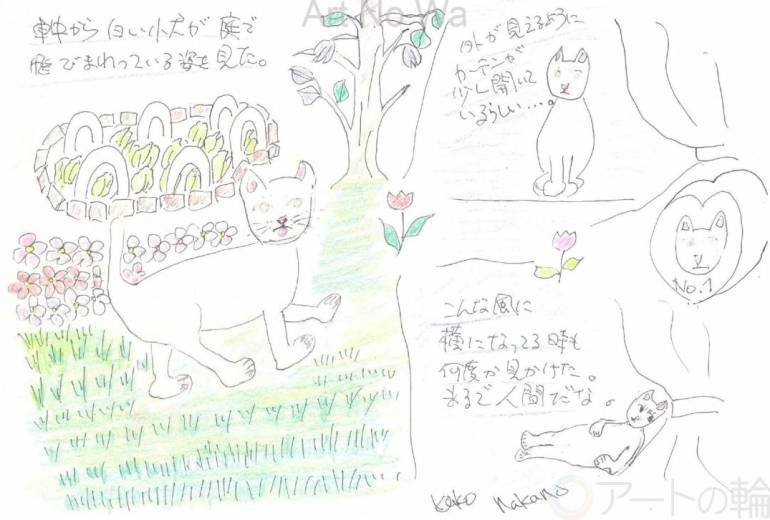 Art No Wa
車中から白い小犬が庭で
飛びまわっている姿を見た。
外が見えるように
カーテンが
少し開いて
いるらしい...。
No.1
こんな風に
横になってる時も
何度か見かけた。
まるで人間だな。
keko nakano
アートの輪